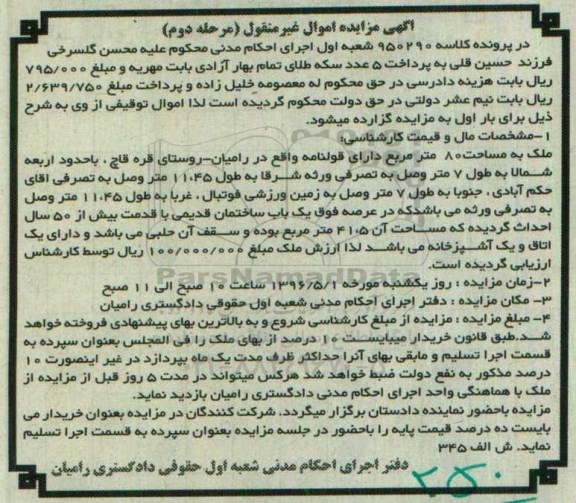 آگهی مزایده اموال غیرمنقول (مرحله دوم)
در پرونده کلاسه ۹۵۰۲۹۰ شعبه اول اجرای احکام مدنی محکوم علیه محسن گلسرخی
فرزند حسین قلی به پرداخت ۵ عدد سکه طلای تمام بهار آزادی بابت مهریه و مبلغ ۷۹۵/۰۰۰
ریال بابت هزینه دادرسی در حق محکوم له معصومه خلیل زاده و پرداخت مبلغ ۲/۶۳۹/۷۵۰
ریال بابت نیم عشر دولتی در حق دولت محکوم گردیده است لذا اموال توقیفی از وی به شرح
ذیل برای بار اول به مزایده گزارده میشود.
۱-مشخصات مال و قیمت کارشناسی:
ملک به مساحت۸۰ متر مربع دارای قولنامه واقع در رامیان-روستای قره قاچ ، باحدود اربعه
شمالا به طول ۷ متر وصل به تصرفی ورثه شرقا به طول ۱۱،۴۵ متر وصل به تصرفی اقای
حکم آبادی ، جنوبا به طول ۷ متر وصل به زمین ورزشی فوتبال ، غربا به طول ۱۱،۴۵ متر وصل
به تصرفی ورثه می باشدکه در عرصه فوق یک باب ساختمان قدیمی با قدمت بیش از ۵۰ سال
احداث گردیده که مساحت آن ۴۱،۵ متر مربع بوده و سقف آن حلبی می باشد و دارای یک
اتاق و یک آشپزخانه می باشد لذا ارزش ملک مبلغ ۱۰۰/۰۰۰/۰۰۰ ریال توسط کارشناس
ارزیابی گردیده است.
ParsNamadData
۲-زمان مزایده : روز یکشنبه مورخه ۱۳۹۶/۵/۱ ساعت ۱۰ صبح الی ۱۱ صبح
۳- مکان مزایده : دفتر اجرای احکام مدنی شعبه اول حقوقی دادگستری رامیان
۴- مبلغ مزایده : مزایده از مبلغ کارشناسی شروع و به بالاترین بهای پیشنهادی فروخته خواهد
شد.طبق قانون خریدار میبایست ۱۰ درصد از بهای ملک را فی المجلس بعنوان سپرده به
قسمت اجرا تسلیم و مابقی بهای آنرا حداکثر ظرف مدت یک ماه بپردازد در غیر اینصورت ۱۰
درصد مذکور به نفع دولت ضبط خواهد شد هرکس میتواند در مدت ۵ روز قبل از مزایده از
ملک با هماهنگی واحد اجرای احکام مدنی دادگستری رامیان بازدید نماید.
مزایده باحضور نماینده دادستان برگزار میگردد. شرکت کنندگان در مزایده بعنوان خریدار می
بایست ده درصد قیمت پایه را باحضور در جلسه مزایده بعنوان سپرده به قسمت اجرا تسلیم
نماید. ش الف ۳۴۵
دفتر اجرای احکام مدنی شعبه اول حقوقی دادگستری رامیان